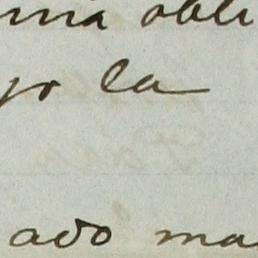 ma obli
jo la
ado ma